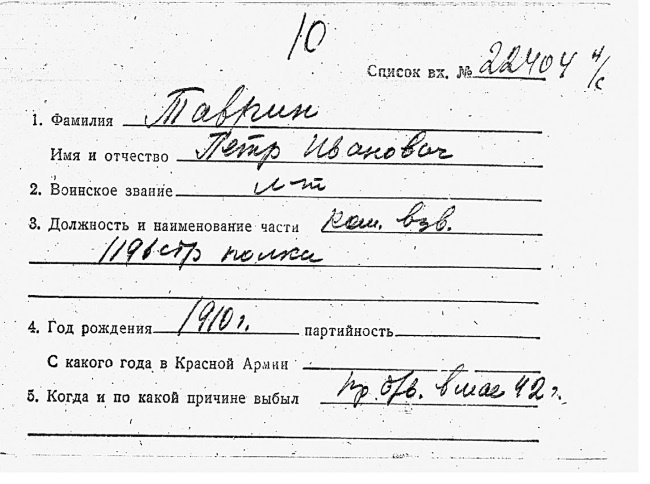 10
Список вх. № 22404 н/с
1. Фамилия Таврин
Имя и отчество Петр Иванович
2. Воинское звание л-т
3. Должность и наименование части Ком. взв.
1196 стр полка
4. Год рождения 1910 г. партийность
С какого года в Красной Армии
5. Когда и по какой причине выбыл пр. б/в. в мае 42 г.